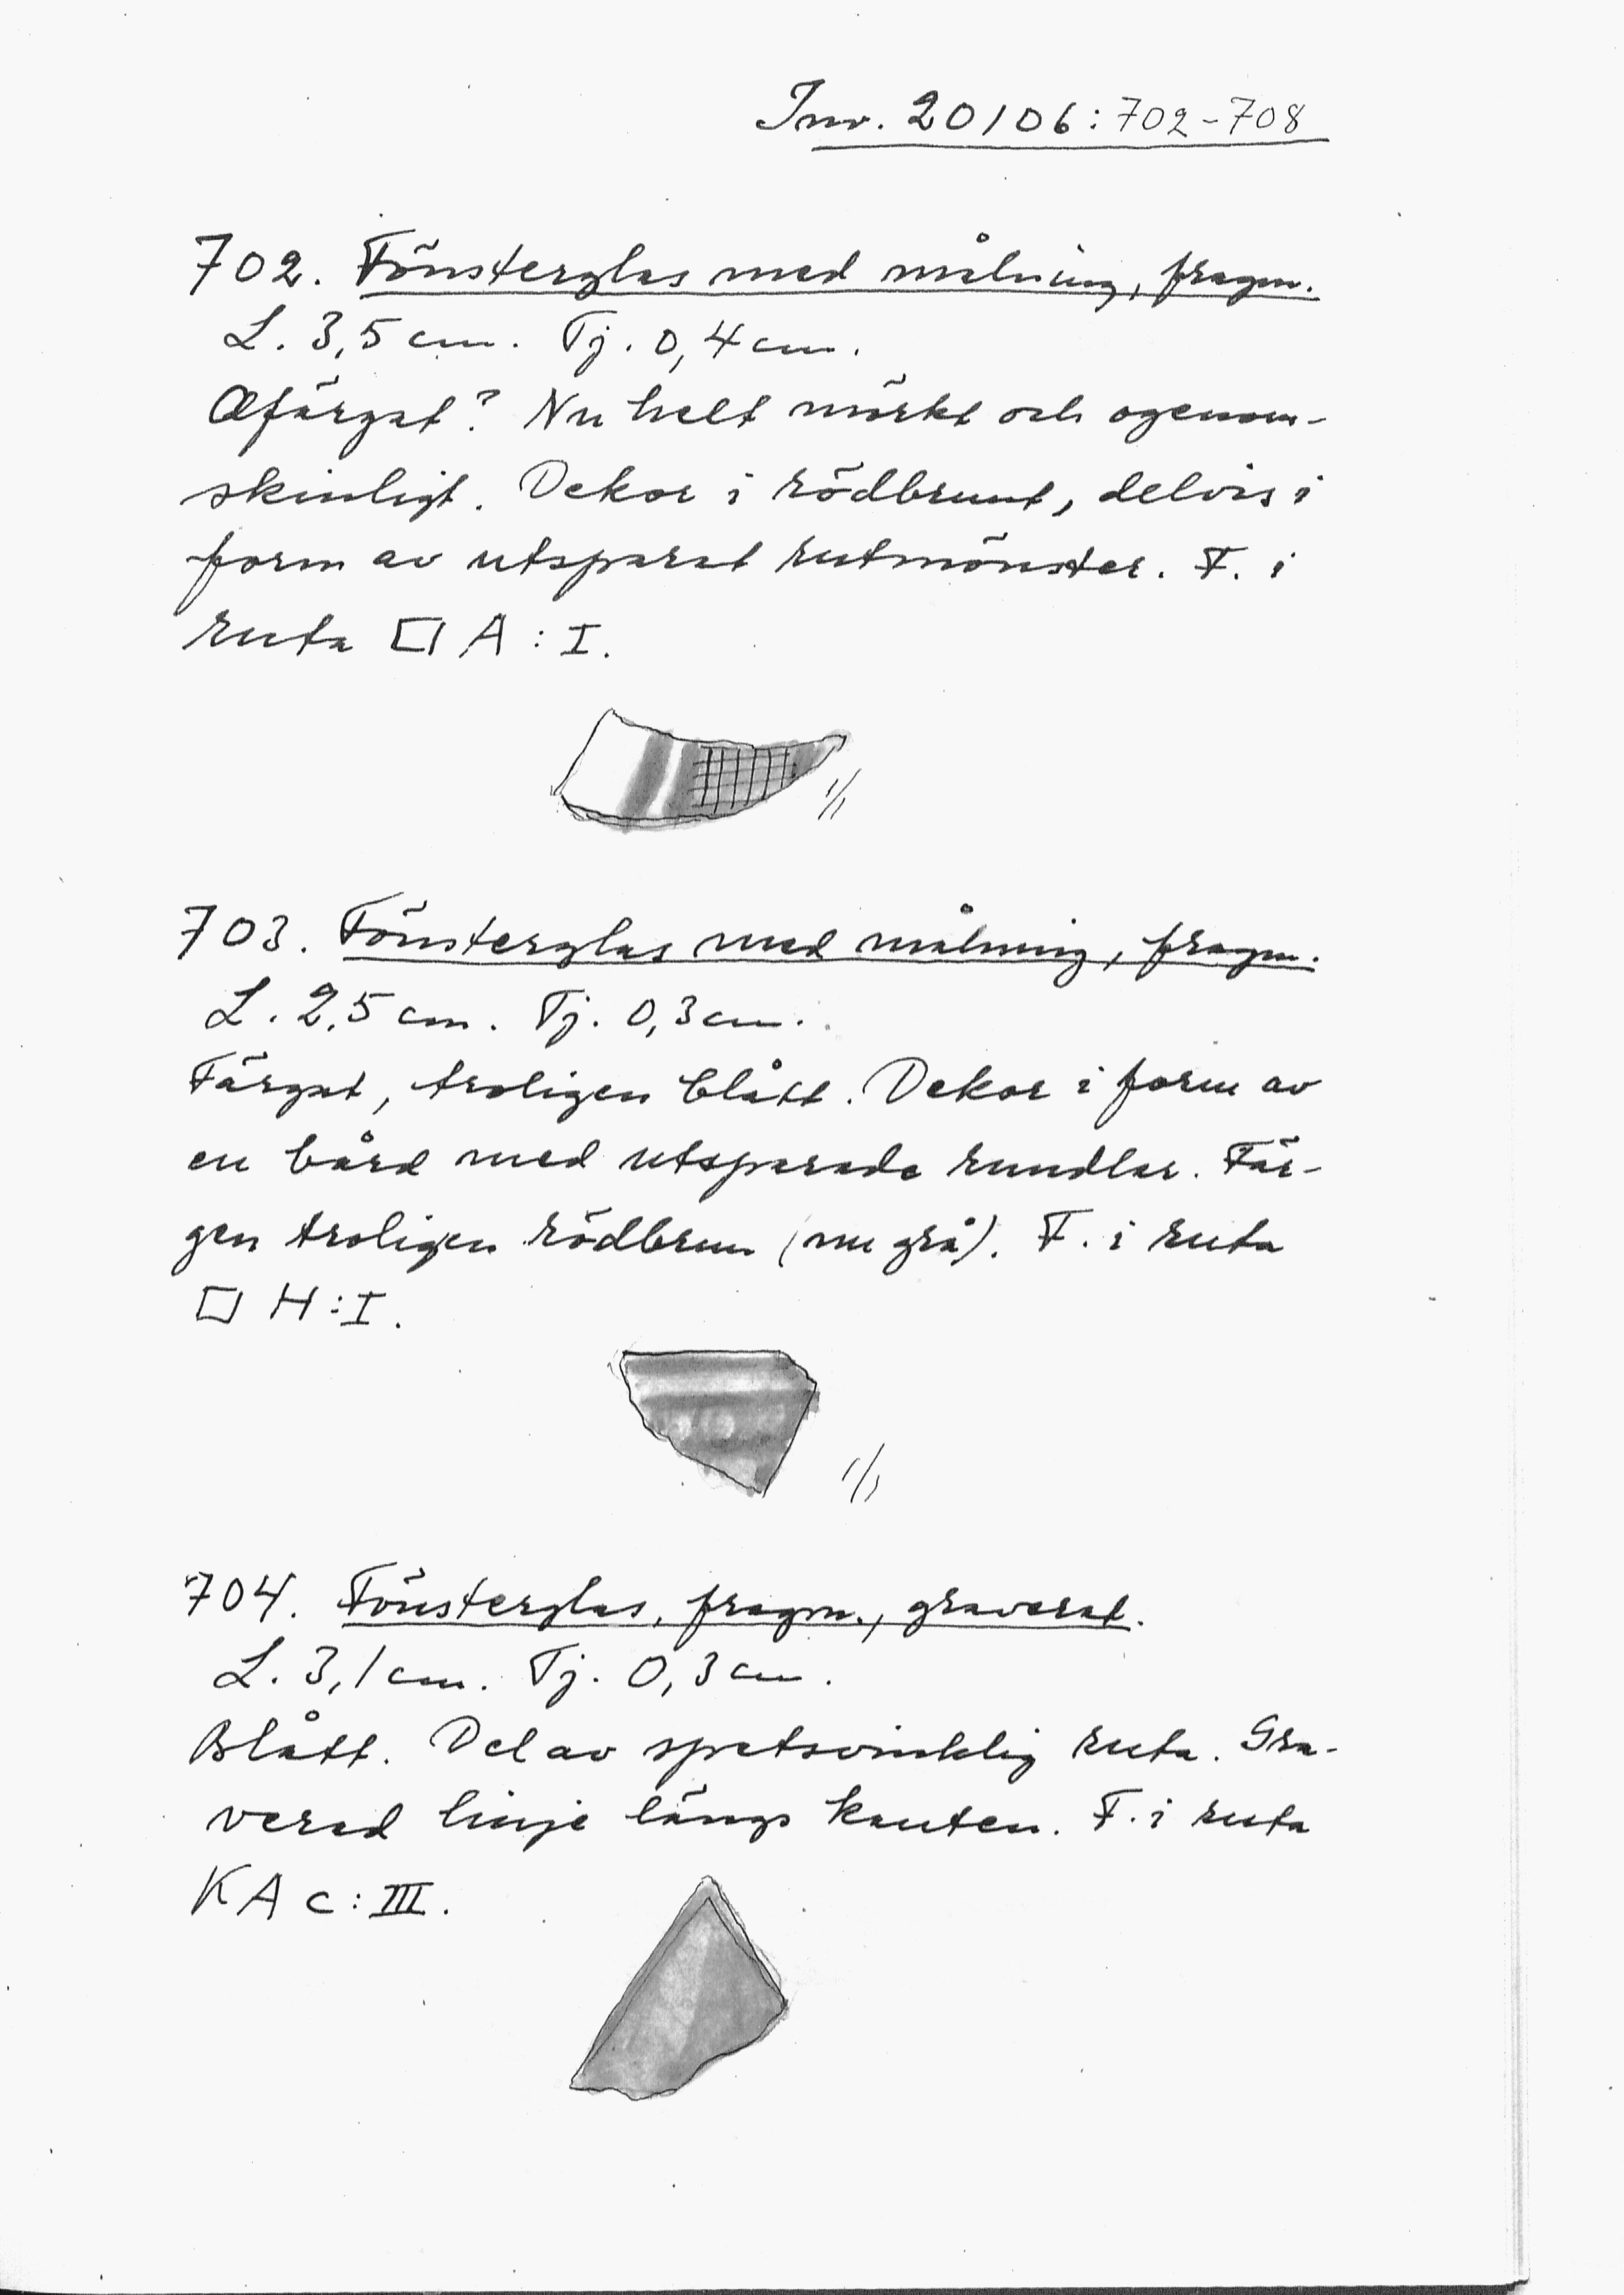 Inv. 20106:702-708
702. Fönsterglas med målning, fragm.
L. 3,5 cm. Tj. 0,4 cm.
Ofärgat? Nu helt mörkt och ogenom-
skinligt. Dekor i rödbrunt, delvis i
form av utsparat rutmönster. F. i
ruta □ A : I.
1/1
703. Fönsterglas med målning, fragm.
L. 2,5 cm. Tj. 0,3 cm.
Färgat, troligen blått. Dekor i form av
en bård med utsparade rundlar. Fär-
gen troligen rödbrun (nu grå). F. i ruta
□ H : I.
1/1
704. Fönsterglas, fragm., graverat.
L. 3,1 cm. Tj. 0,3 cm.
Blått. Del av spetsvinklig ruta. Gra-
verad linje längs kanten. F. i ruta
KA c : III.